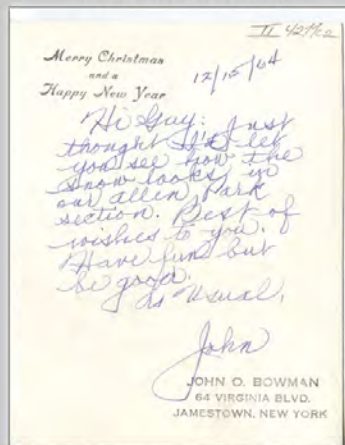 Merry Christmas
and a
Happy New Year
12/15/64
Hi Guy: Just
thought I'd let
you see how the
snow looks in
our Allen Park
section. Best of
wishes to you.
Have fun but
be good.
As Usual,
John
JOHN O. BOWMAN
64 VIRGINIA BLVD.
JAMESTOWN, NEW YORK